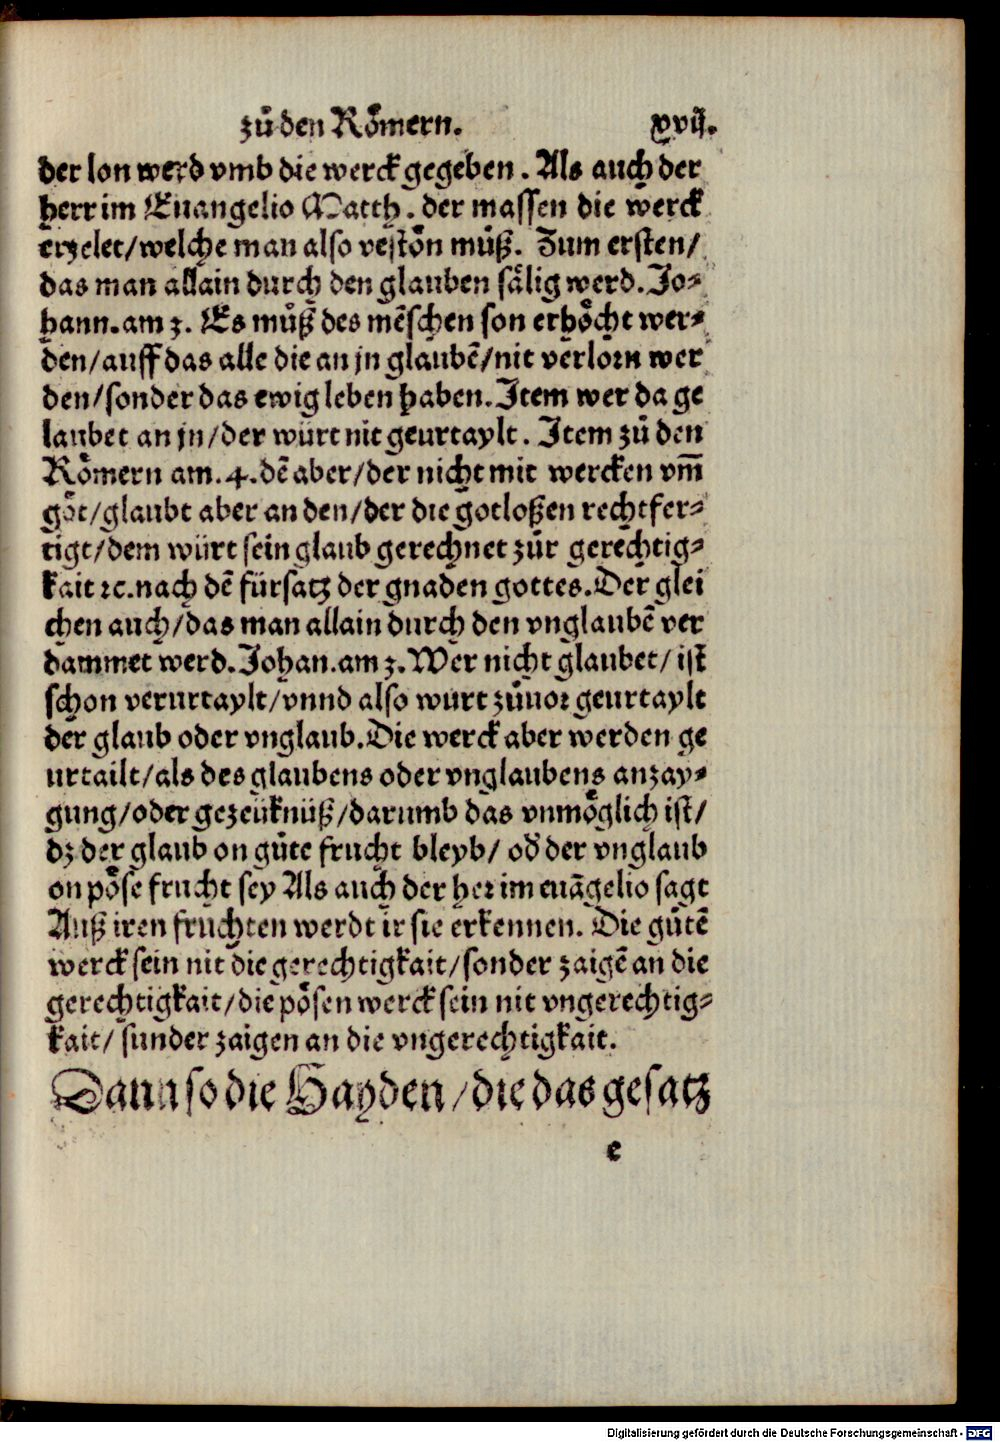 zů den Römern. xvij.
der lon werd vmb die werck gegeben. Als auch der
herr im Euangelio Matth. der massen die werck
erzelet/welche man also vestön můß. Zum ersten/
das man allain durch den glauben sälig werd. Jo⸗
hann. am 3. Es můß des mēschen son erhöcht wer⸗
den/auff das alle die an jn glaubē/nit verlorn wer
den/sonder das ewig leben haben. Item wer da ge
laubet an jn/der würt nit geurtaylt. Item zů den
Römern am. 4. dē aber/der nicht mit wercken vm̄
göt/glaubt aber an den/der die gotloßen rechtfer⸗
tigt/dem würt sein glaub gerechnet zůr gerechtig⸗
kait ꝛc. nach dē fürsatz der gnaden gottes. Der glei
chen auch/das man allain durch den vnglaubē ver
dammet werd. Johan. am 3. Wer nicht glaubet/ist
schon verurtaylt/vnnd also wurt zůuor geurtaylt
der glaub oder vnglaub. Die werck aber werden ge
urtailt/als des glaubens oder vnglaubens anzay⸗
gung/oder gezeuknüß/darumb das vnmöglich ist/
dz der glaub on gůte frucht bleyb/ od̄ der vnglaub
on pöse frucht sey Als auch der her im euāgelio sagt
Auß iren fruchten werdt ir sie erkennen. Die gůtē
werck sein nit die gerechtigkait/sonder zaigē an die
gerechtigkait/die pösen werck sein nit vngerechtig⸗
kait/ sunder zaigen an die vngerechtigkait.
Dann so die Hayden/die das gesatz
e
Digitalisierung gefördert durch die Deutsche Forschungsgemeinschaft - DFG